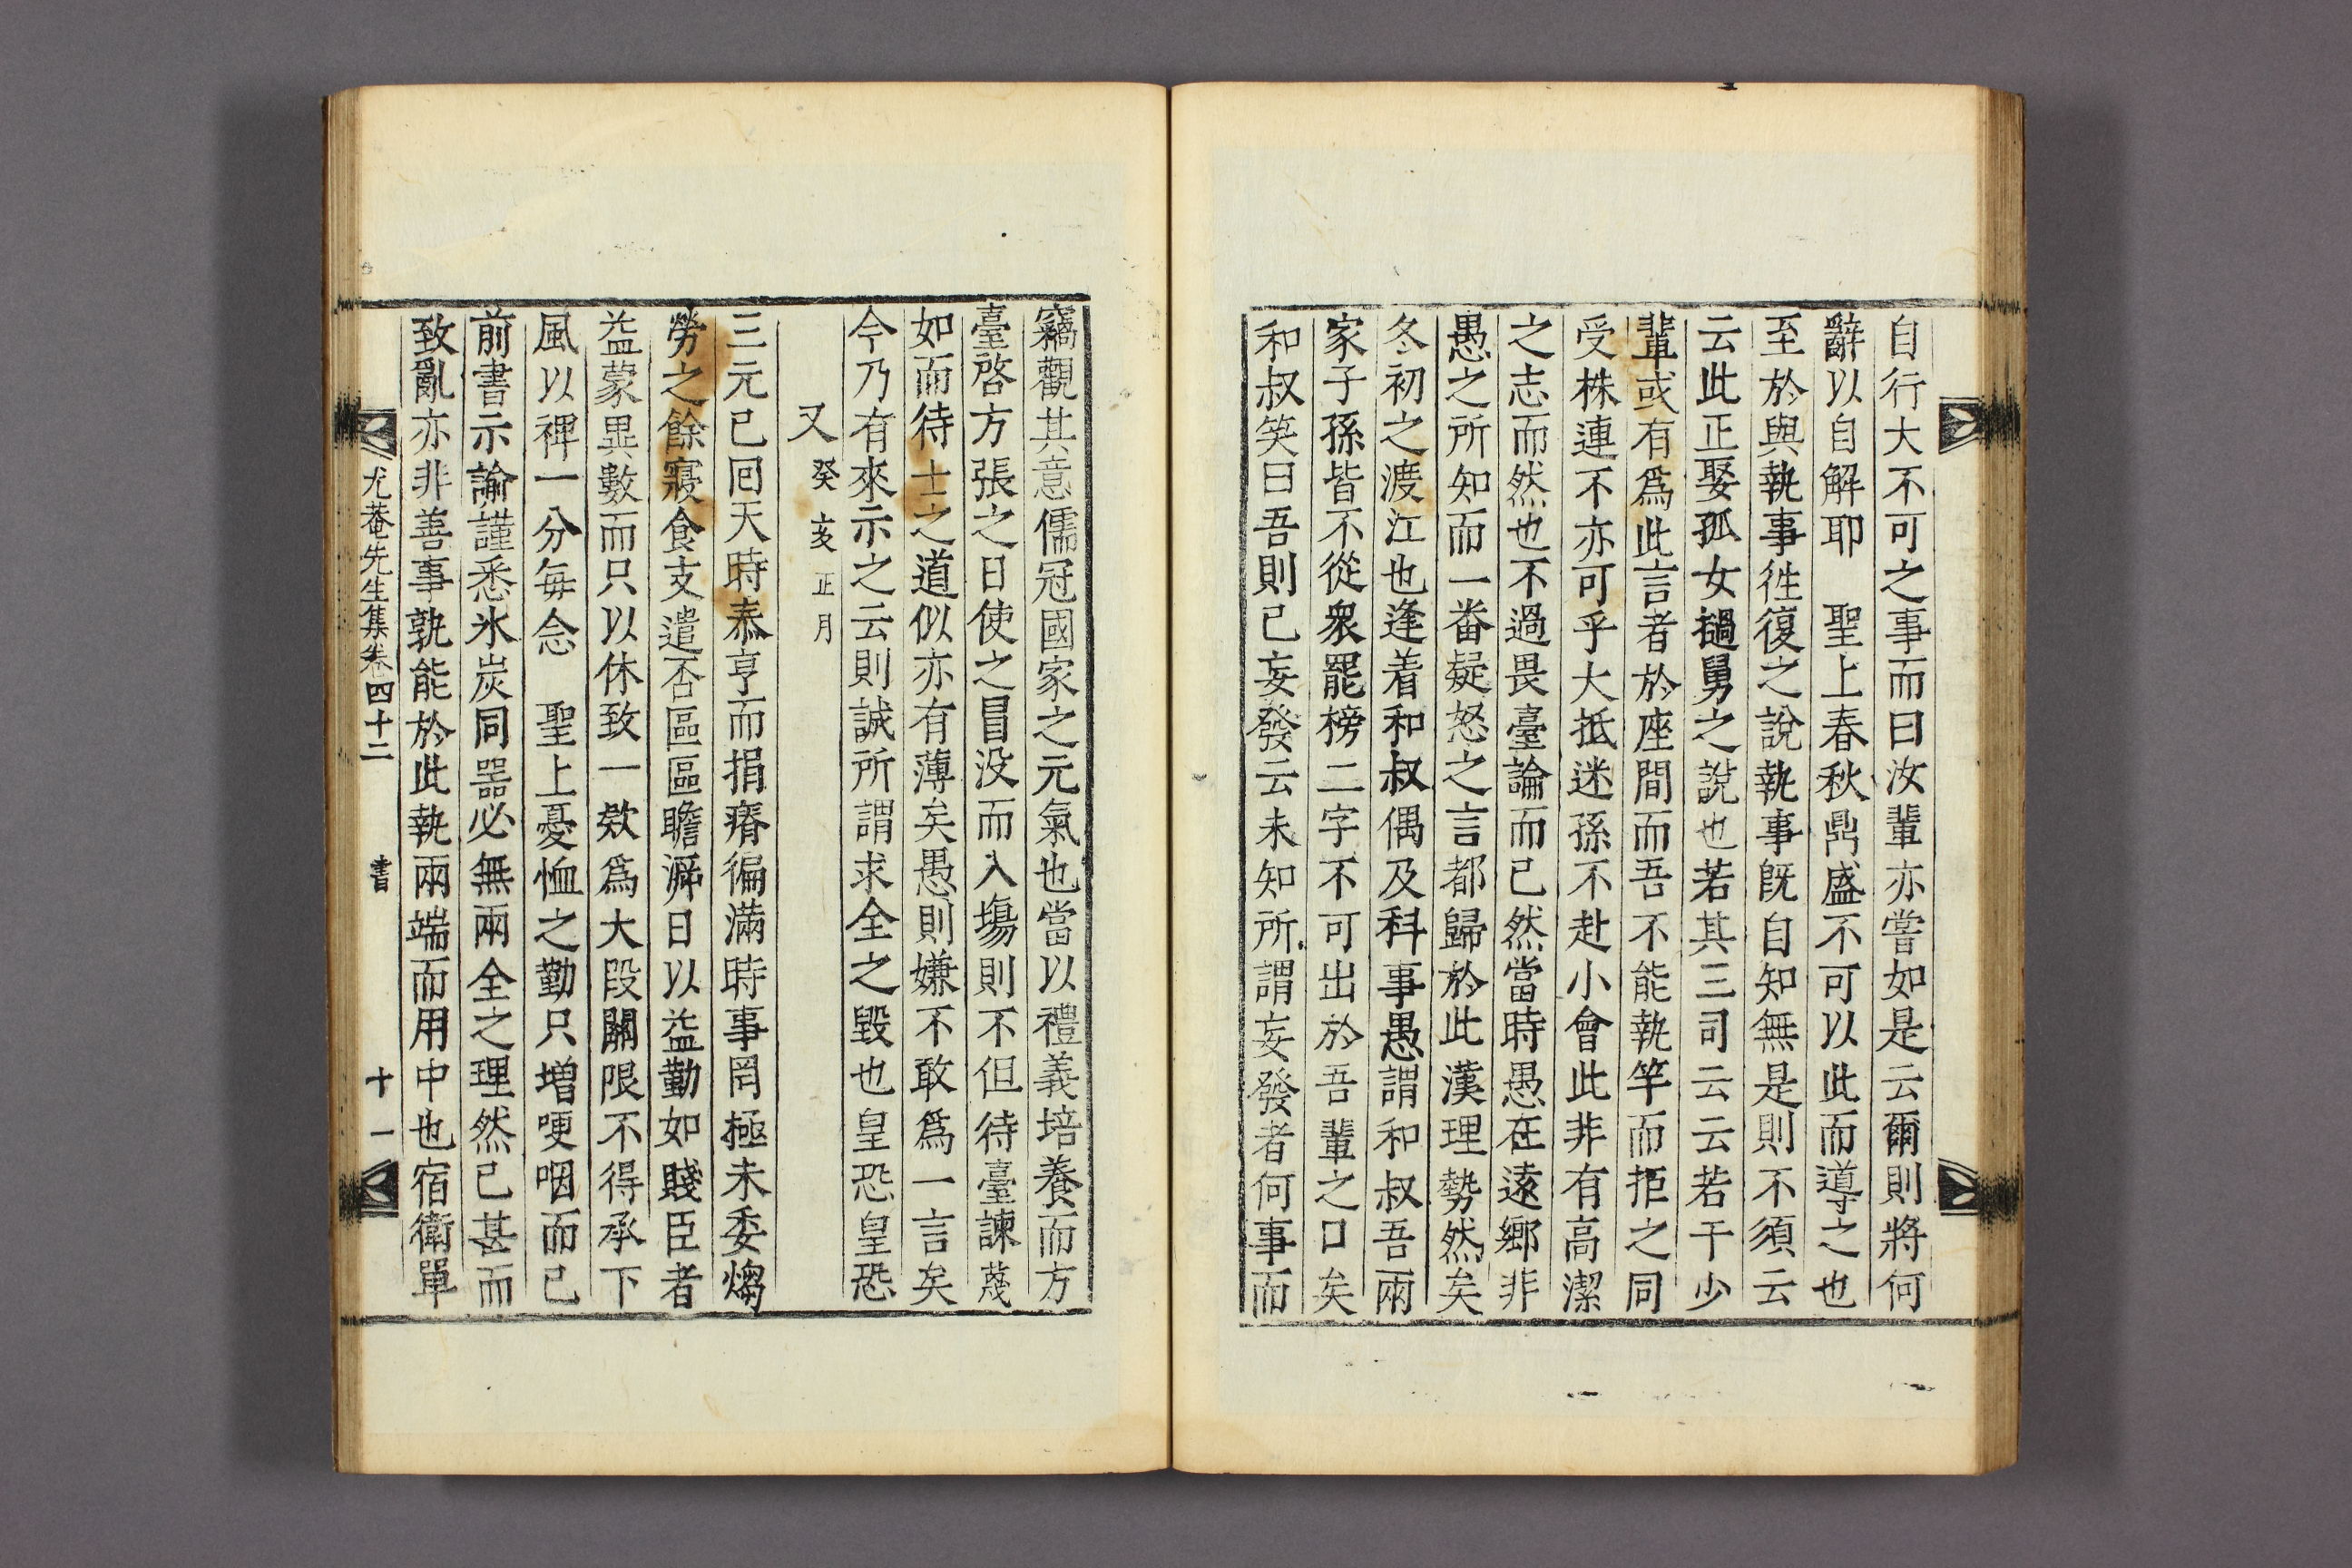 自行大不可之事而曰汝輩亦嘗如是云爾則將何
辭以自解耶　聖上春秋鼎盛不可以此而導之也
至於與執事徃復之說執事旣自知無是則不須云
云此正娶孤女撾舅之說也若其三司云云若干少
輩或有爲此言者於座間而吾不能執竿而拒之同
受株連不亦可乎大抵迷孫不赴小會此非有高潔
之志而然也不過畏臺論而已然當時愚在遠鄉非
愚之所知而一番疑怒之言都歸於此漢理勢然矣
冬初之渡江也逢着和叔偶及科事愚謂和叔吾兩
家子孫皆不從衆罷榜二字不可出於吾輩之口矣
和叔笑曰吾則已妄發云未知所謂妄發者何事而
竊觀其意儒冠國家之元氣也當以禮義培養而方
臺啓方張之日使之冒没而入場則不但待臺諫蔑
如而待士之道似亦有薄矣愚則嫌不敢爲一言矣
今乃有來示之云則誠所謂求全之毀也皇恐皇恐
又癸亥正月
三元已回天時泰亨而捐瘠徧滿時事罔極未委煼
勞之餘寢食支遣否區區瞻溯日以益勤如賤臣者
益蒙異數而只以休致一欵爲大段關限不得承下
風以裨一分每念　聖上憂恤之勤只增哽咽而已
前書示諭謹悉氷炭同器必無兩全之理然已甚而
致亂亦非善事孰能於此執兩端而用中也宿衛單
尤菴先生集卷四十二　書　十一